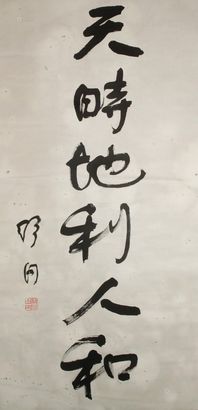 天時地利人和
舒同